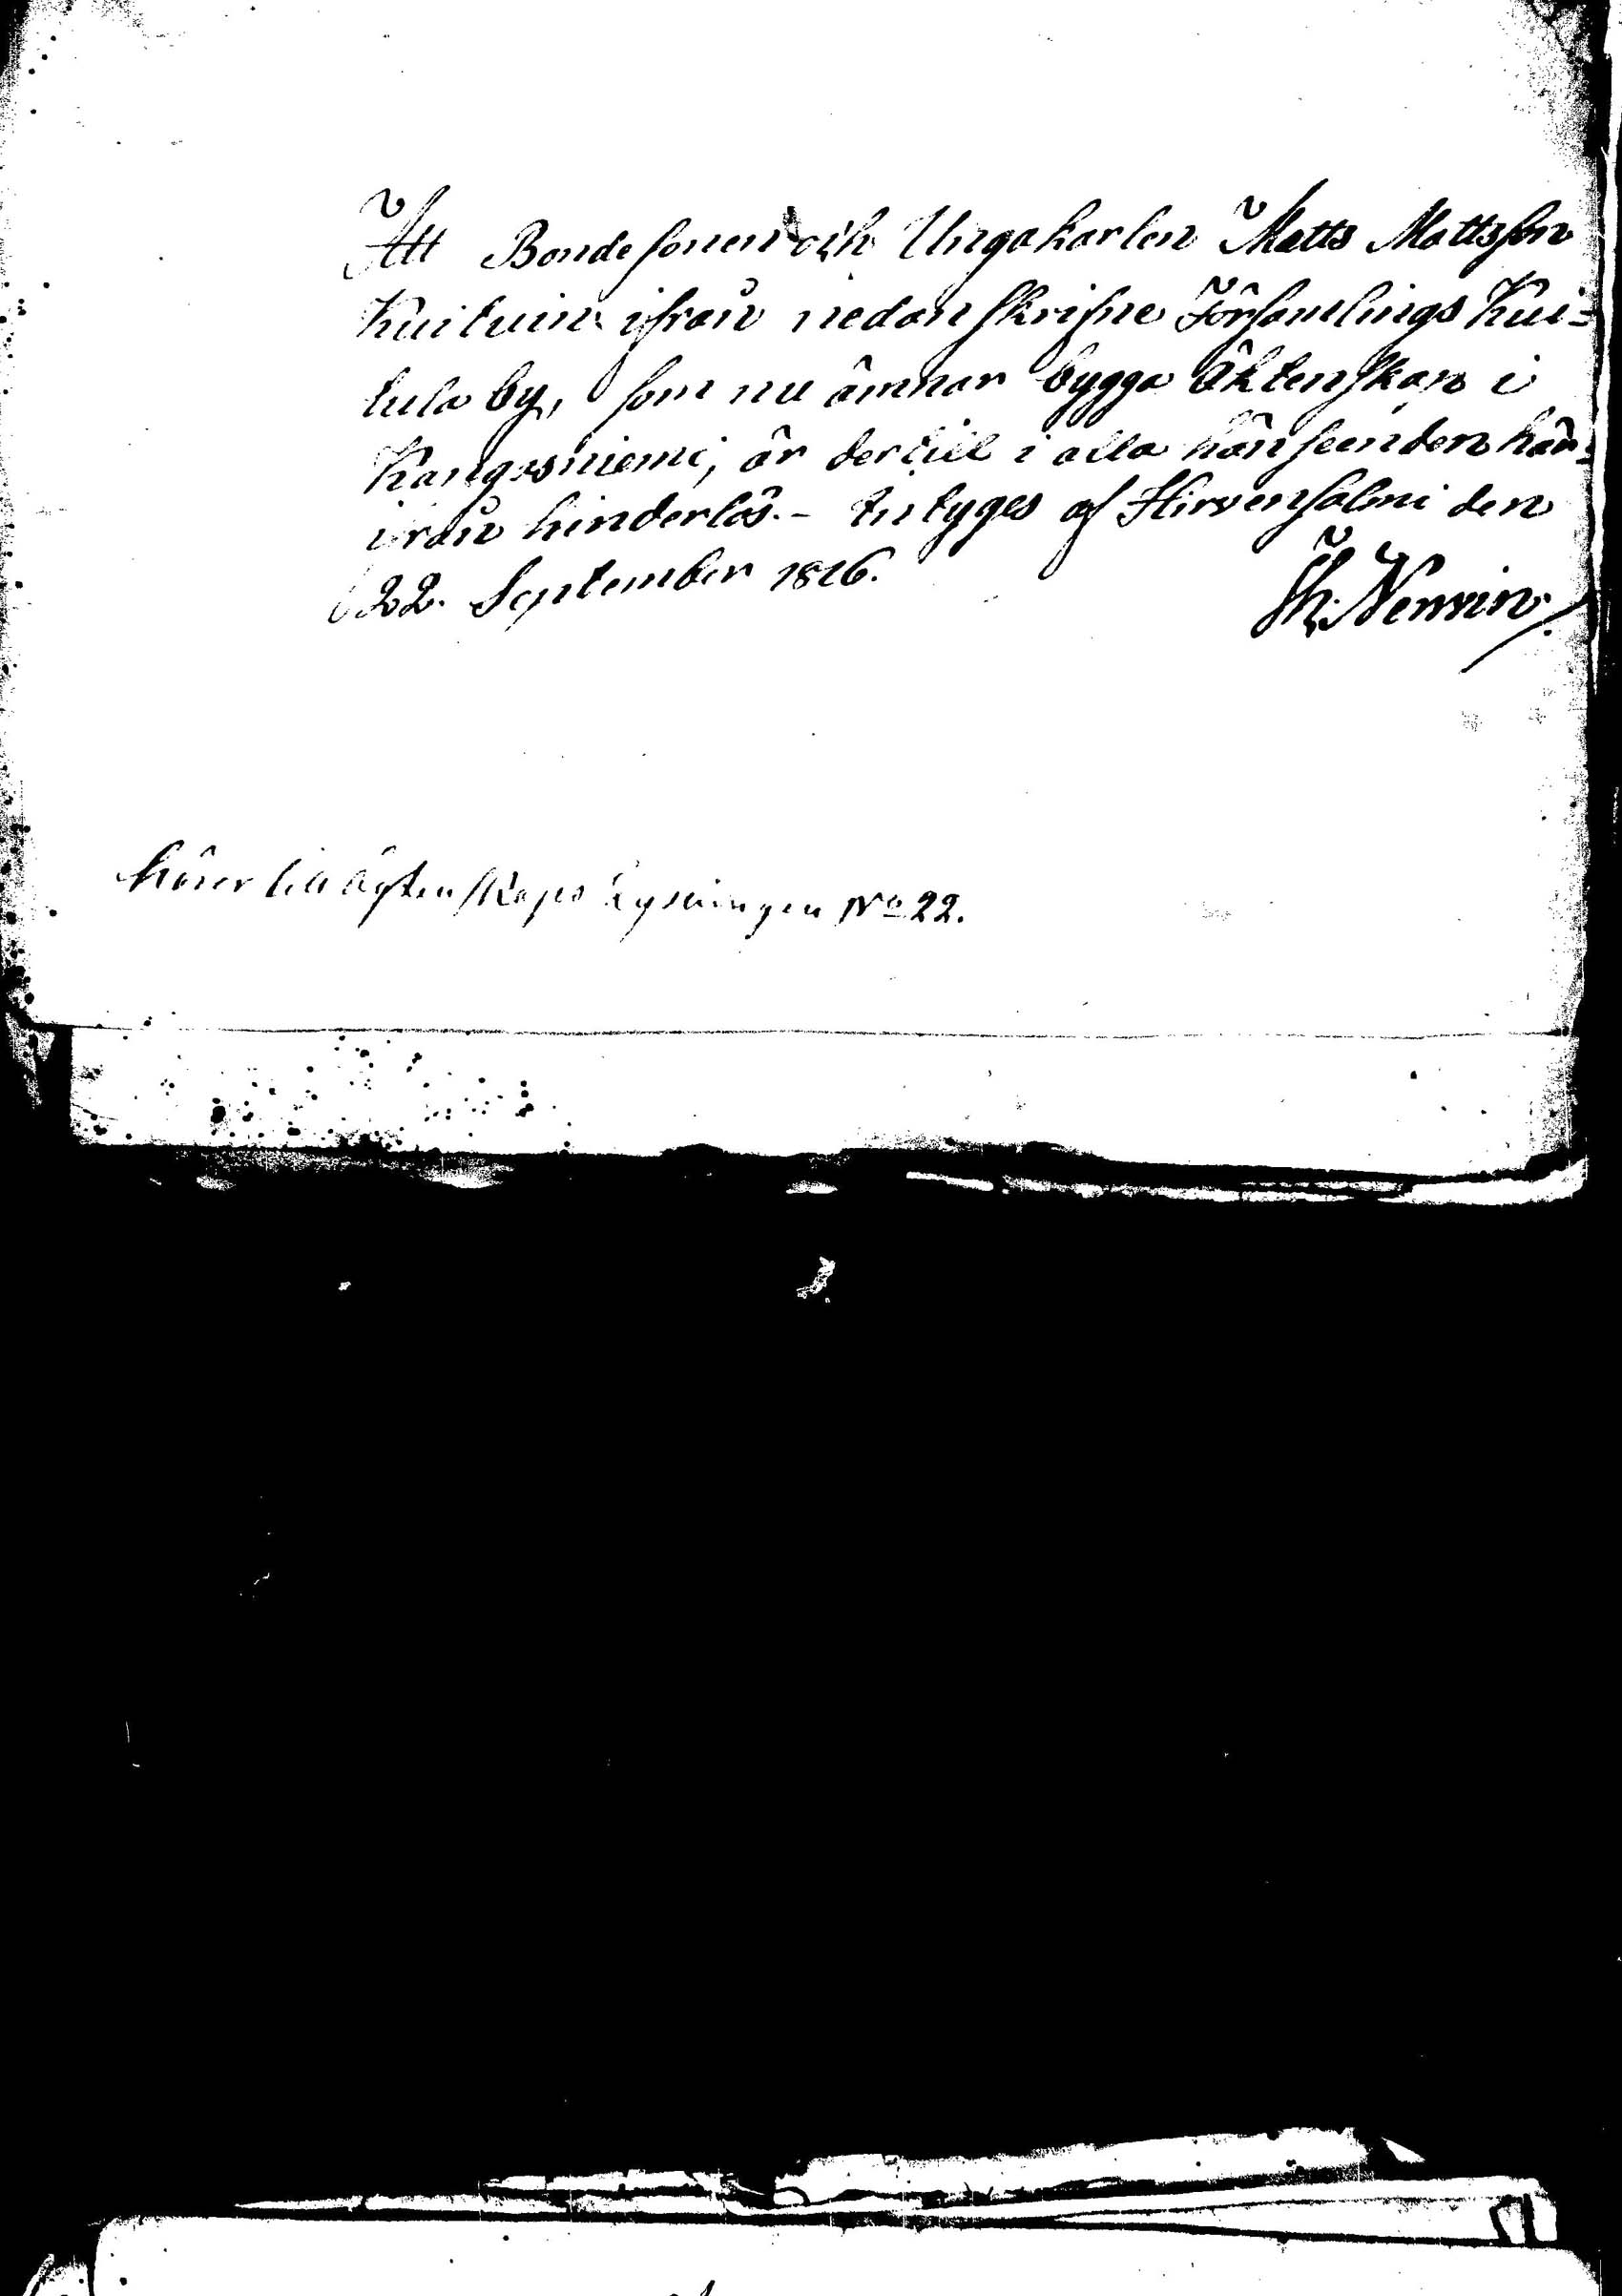 Att Bondesonen och Ungakarlen Matts Mattsson
Kuituin ifrån nedanskrifne Församlings Kui=
tula by, som nu ämnar bygga Äktenskap i
Kangasniemi, är dertill i alla hänseenden här=
ifrån hinderlös. – Intyges af Hirvensalmi den
22. September 1826.
Th. Nervin
hörer till ägtenskaps Lysningen No 22.